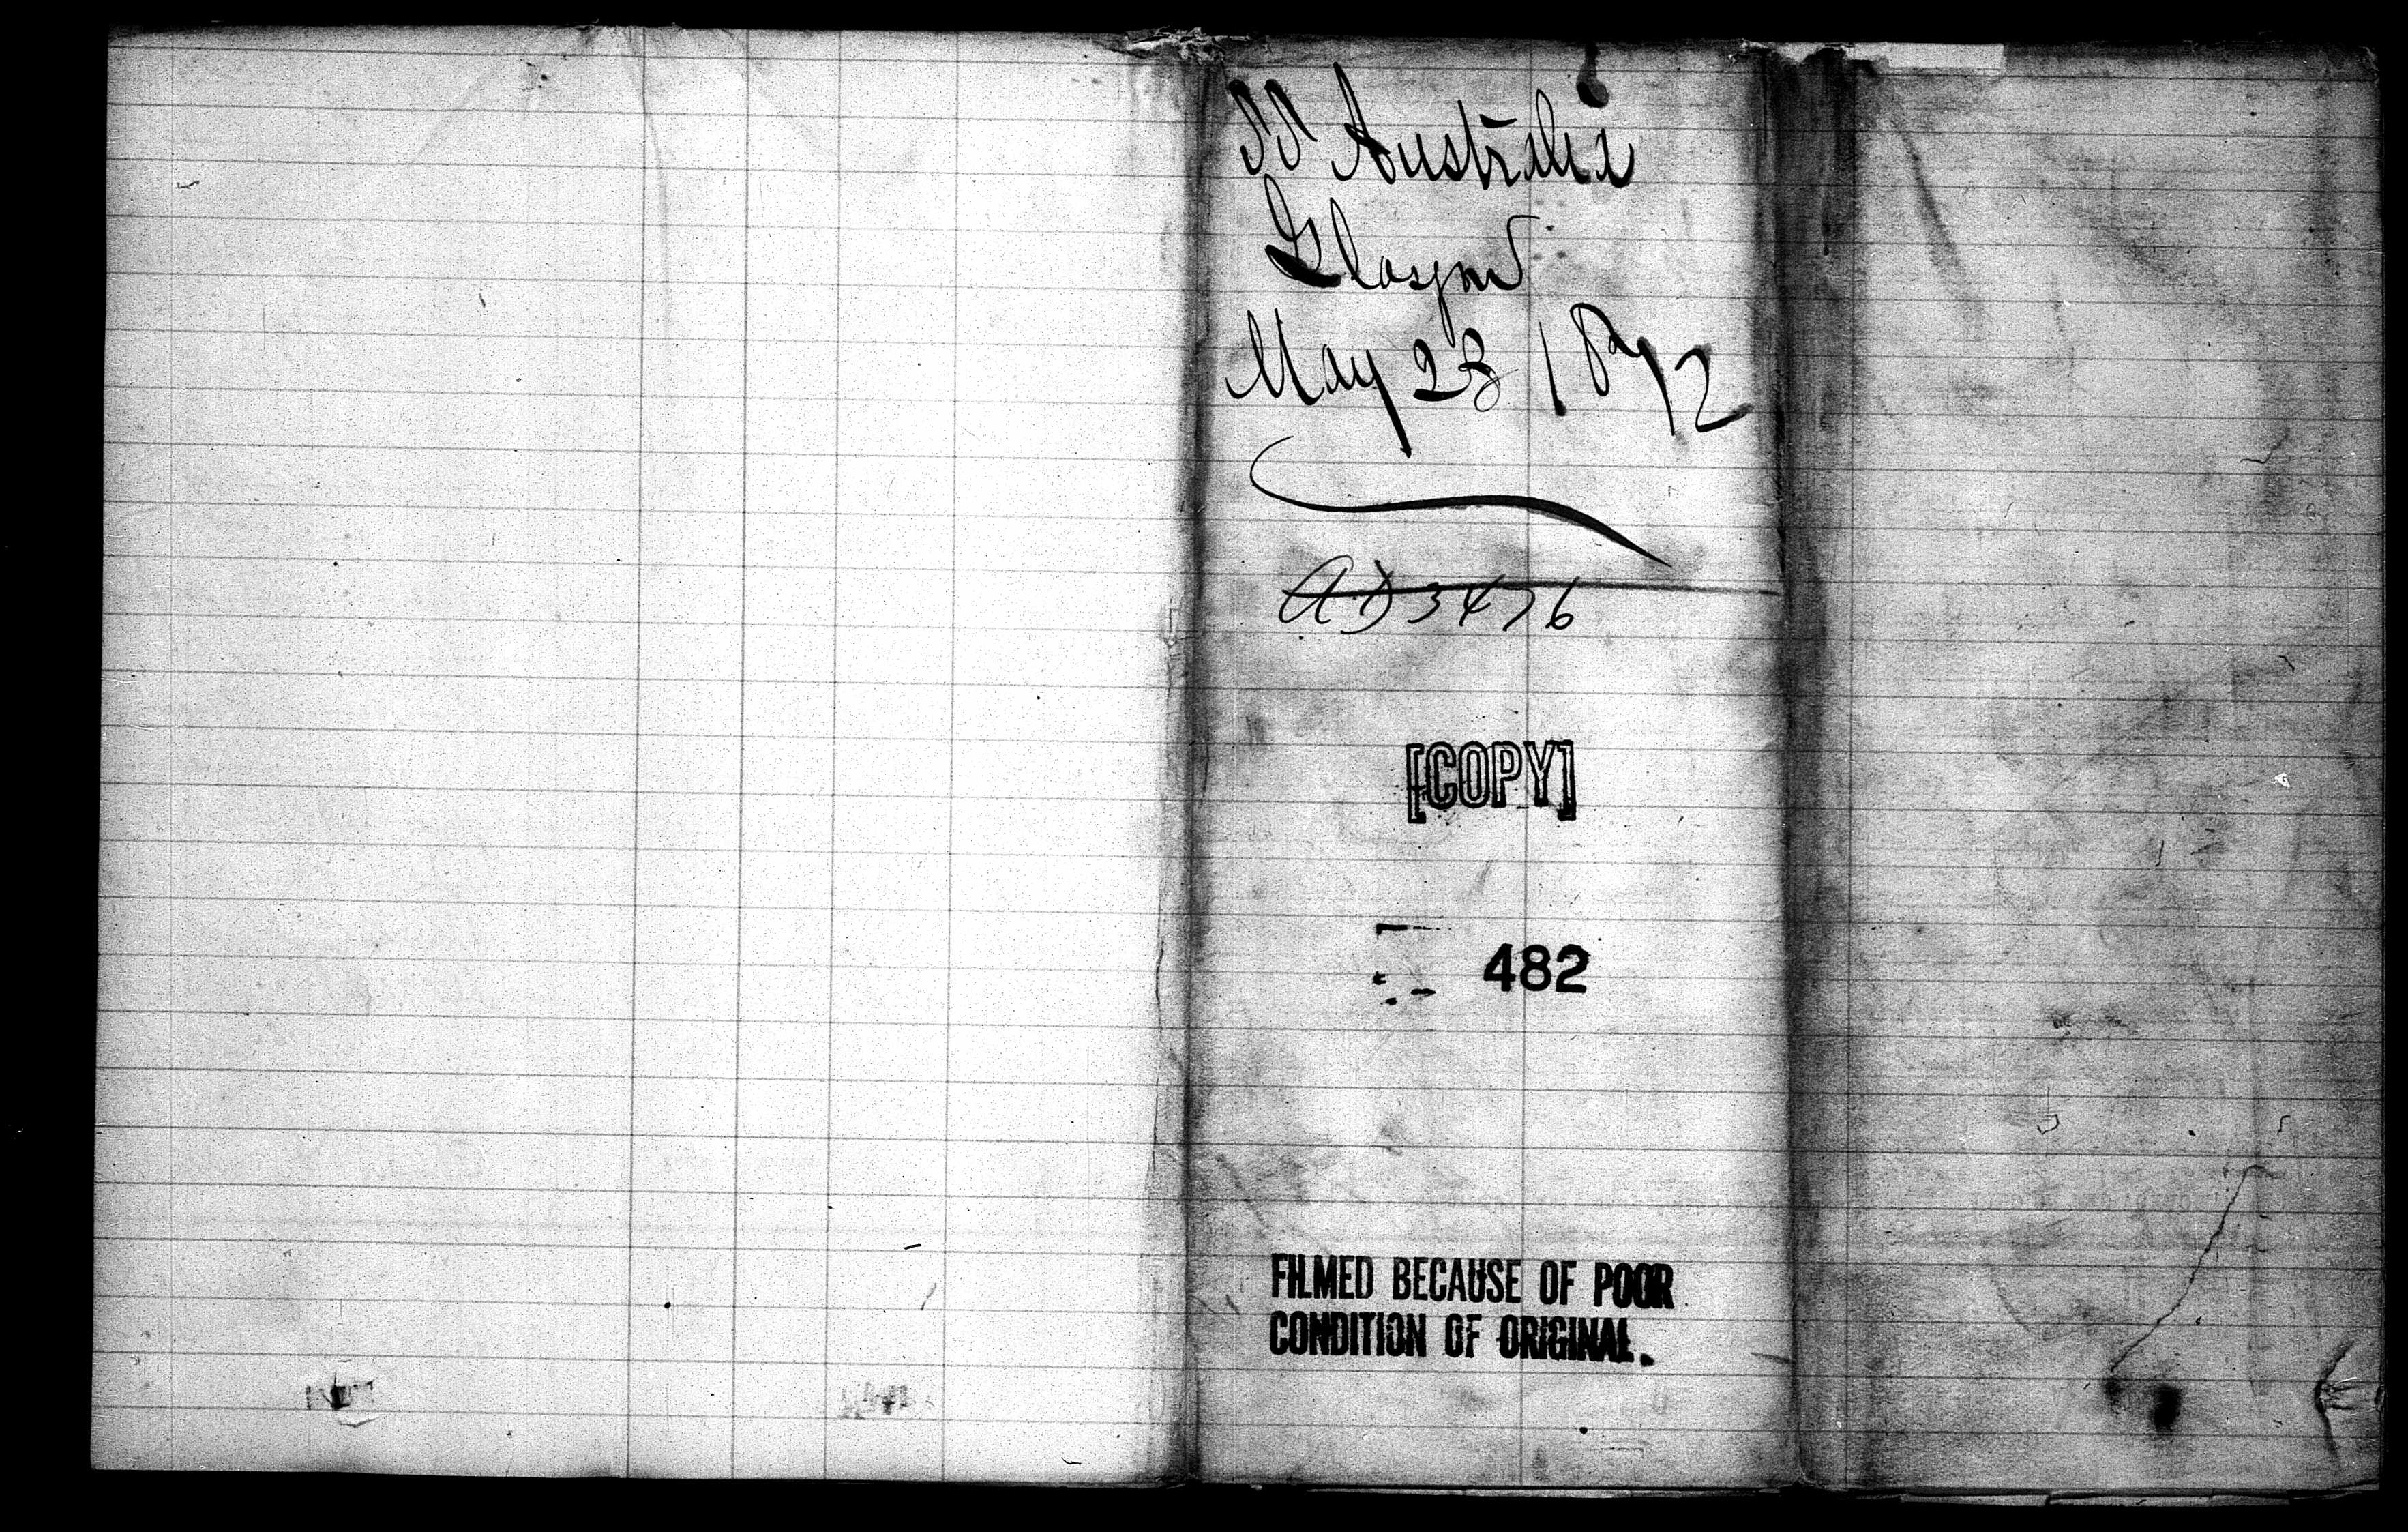 SS Australia
Glasgow
May 23 1872
AD 3476
[COPY]
482
FILMED BECAUSE OF POOR
CONDITION OF ORIGINAL.